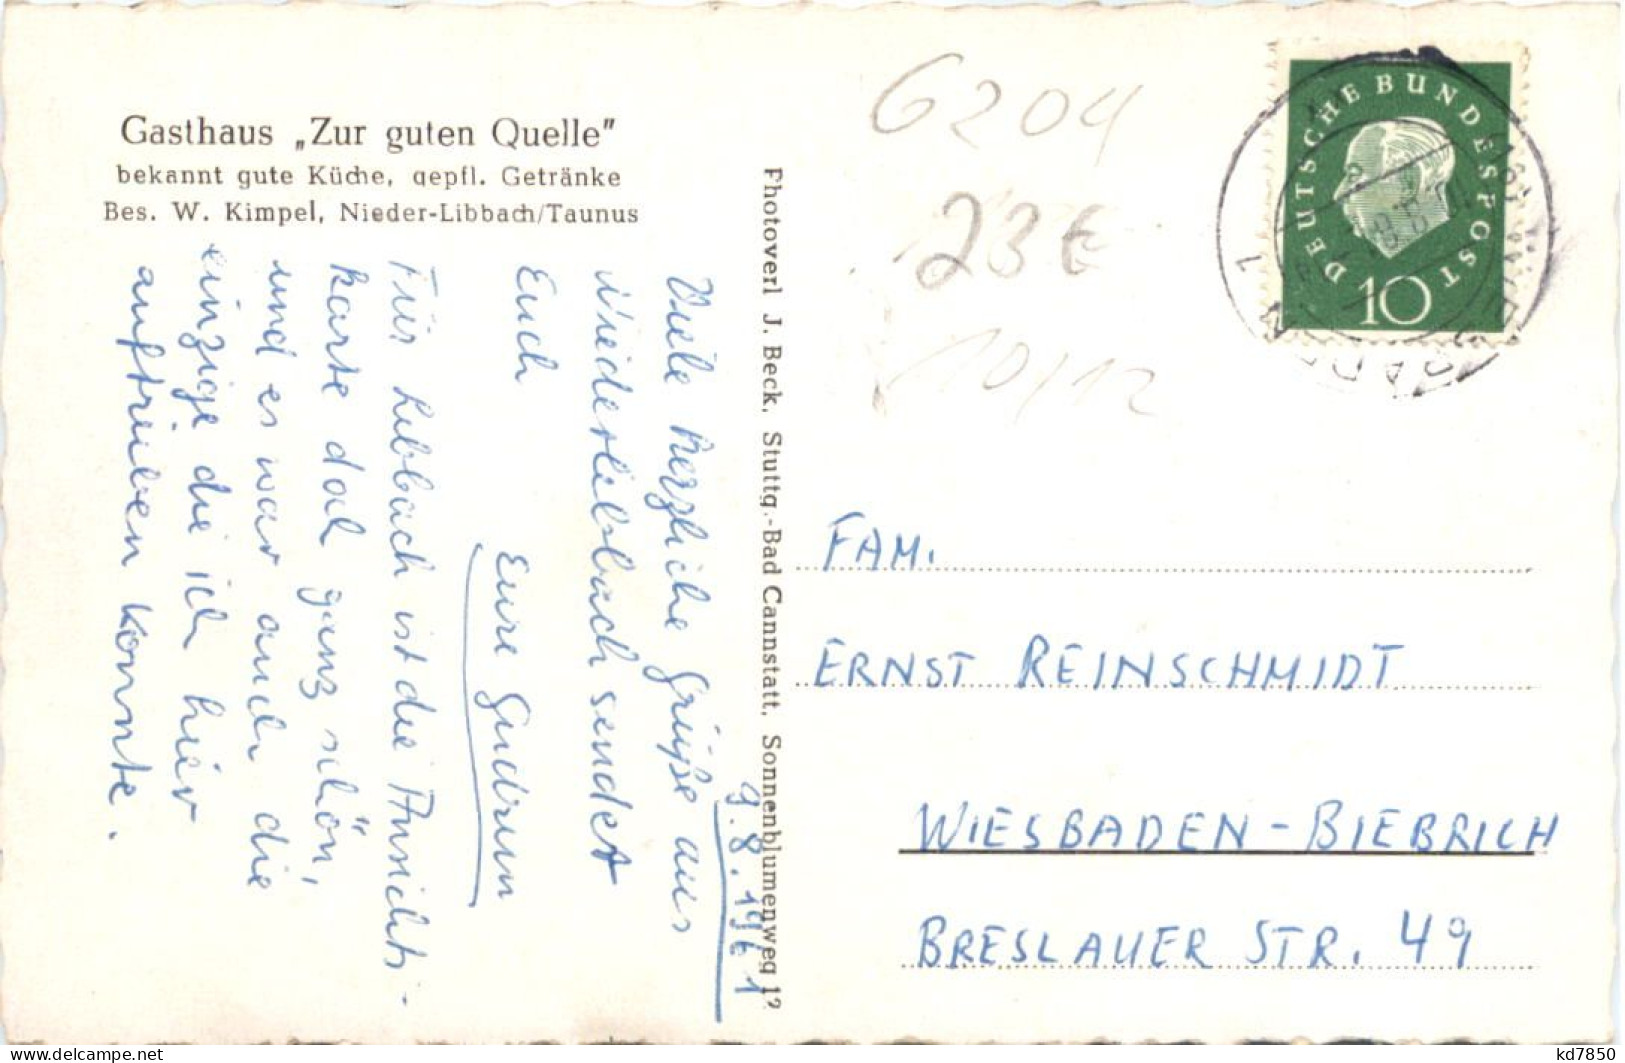 Gasthaus „Zur guten Quelle"
bekannt gute Küche, gepfl. Getränke
Bes. W. Kimpel, Nieder-Libbach/Taunus
9.8.1961
Viele herzliche Grüße aus
Niederlibbach sendet
Euch
Eure Gudrun
Für Libbach ist die Ansichts-
karte doch ganz schön,
und es war auch die
einzige die ich hier
auftreiben konnte.
Photoverl J. Beck, Stuttg.-Bad Cannstatt, Sonnenblumenweg 1?
6204
23 €
10/12
DEUTSCHE BUNDESPOST
10
FAM.
ERNST REINSCHMIDT
WIESBADEN-BIEBRICH
BRESLAUER STR. 49
kd7850